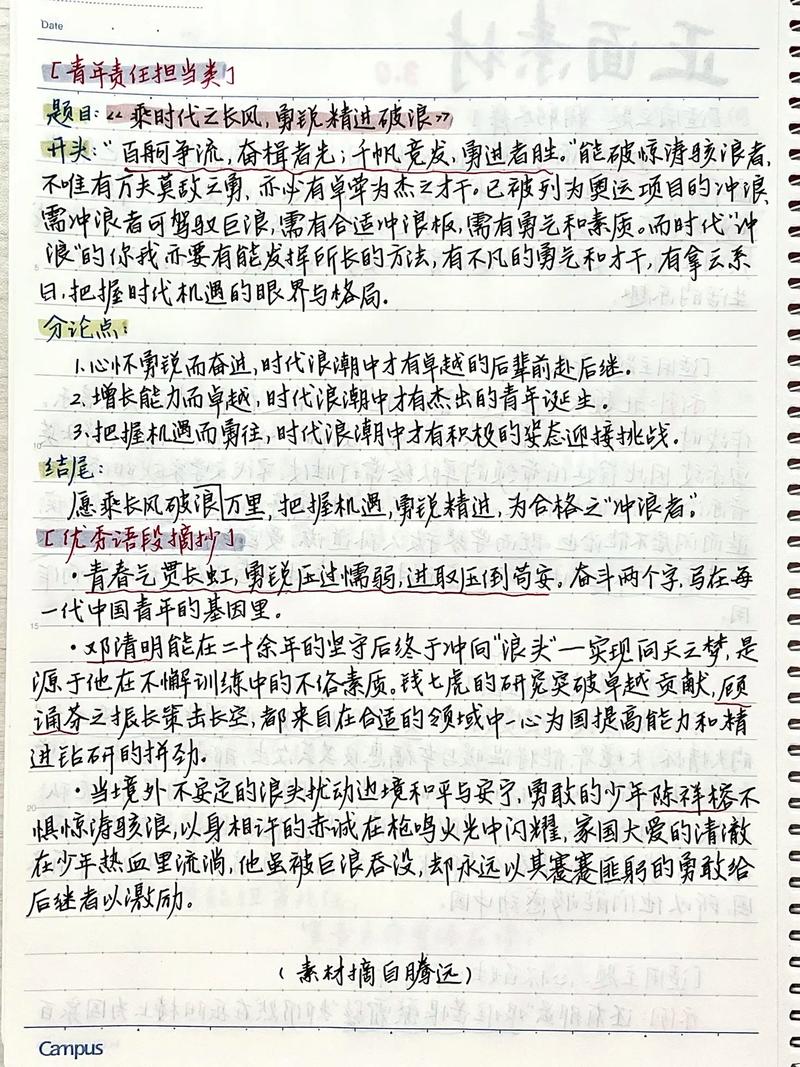 Date
[青年责任担当类]
题目:“乘时代之长风,勇锐精进破浪”
开头:“百舸争流,奋楫者先;千帆竞发,勇进者胜。”能破惊涛骇浪者,
不唯有万夫莫敌之勇,亦必有卓荦为杰之才干。已被列为奥运项目的冲浪,
需冲浪者可驾驭巨浪,需有合适冲浪板,需有勇气和素质。而时代“冲
浪”的你我亦要有能发挥所长的方法,有不凡的勇气和才干,有拿云系
日,把握时代机遇的眼界与格局。
分论点:
1.心怀勇锐而奋进,时代浪潮中才有卓越的后辈前赴后继。
2.增长能力而卓越,时代浪潮中才有杰出的青年诞生。
3.把握机遇而勇往,时代浪潮中才有积极的姿态迎接挑战。
结尾:
愿乘长风破浪万里,把握机遇,勇锐精进,为合格之“冲浪者”。
[优秀语段摘抄]
·青春气贯长虹,勇锐压过懦弱,进取压倒苟安。奋斗两个字,写在每
一代中国青年的基因里。
·邓清明能在二十余年的坚守后终于冲向“浪头”一实现问天之梦,是
源于他在不懈训练中的不俗素质。钱七虎的研究突破卓越贡献,顾
诵芬之振长策击长空,都来自在合适的领域中一心为国提高能力和精
进钻研的拼劲。
·当境外不安定的浪头扰动边境和平与安宁,勇敢的少年陈祥榕不
惧惊涛骇浪,以身相许的赤诚在枪鸣火光中闪耀,家国大爱的清澈
在少年热血里流淌,他虽被巨浪吞没,却永远以其蹇蹇匪躬的勇敢给
后继者以激励。
(素材摘自腾远)
Campus